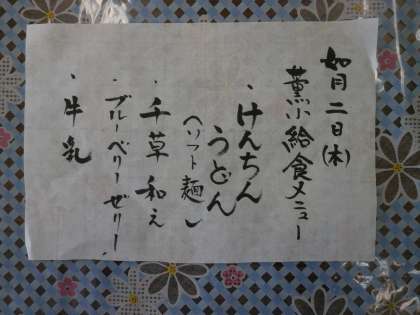 如月二日(木)
薫小給食メニュー
・けんちん
うどん
(ソフト麺)
・千草和え
・ブルーベリーゼリー
・牛乳